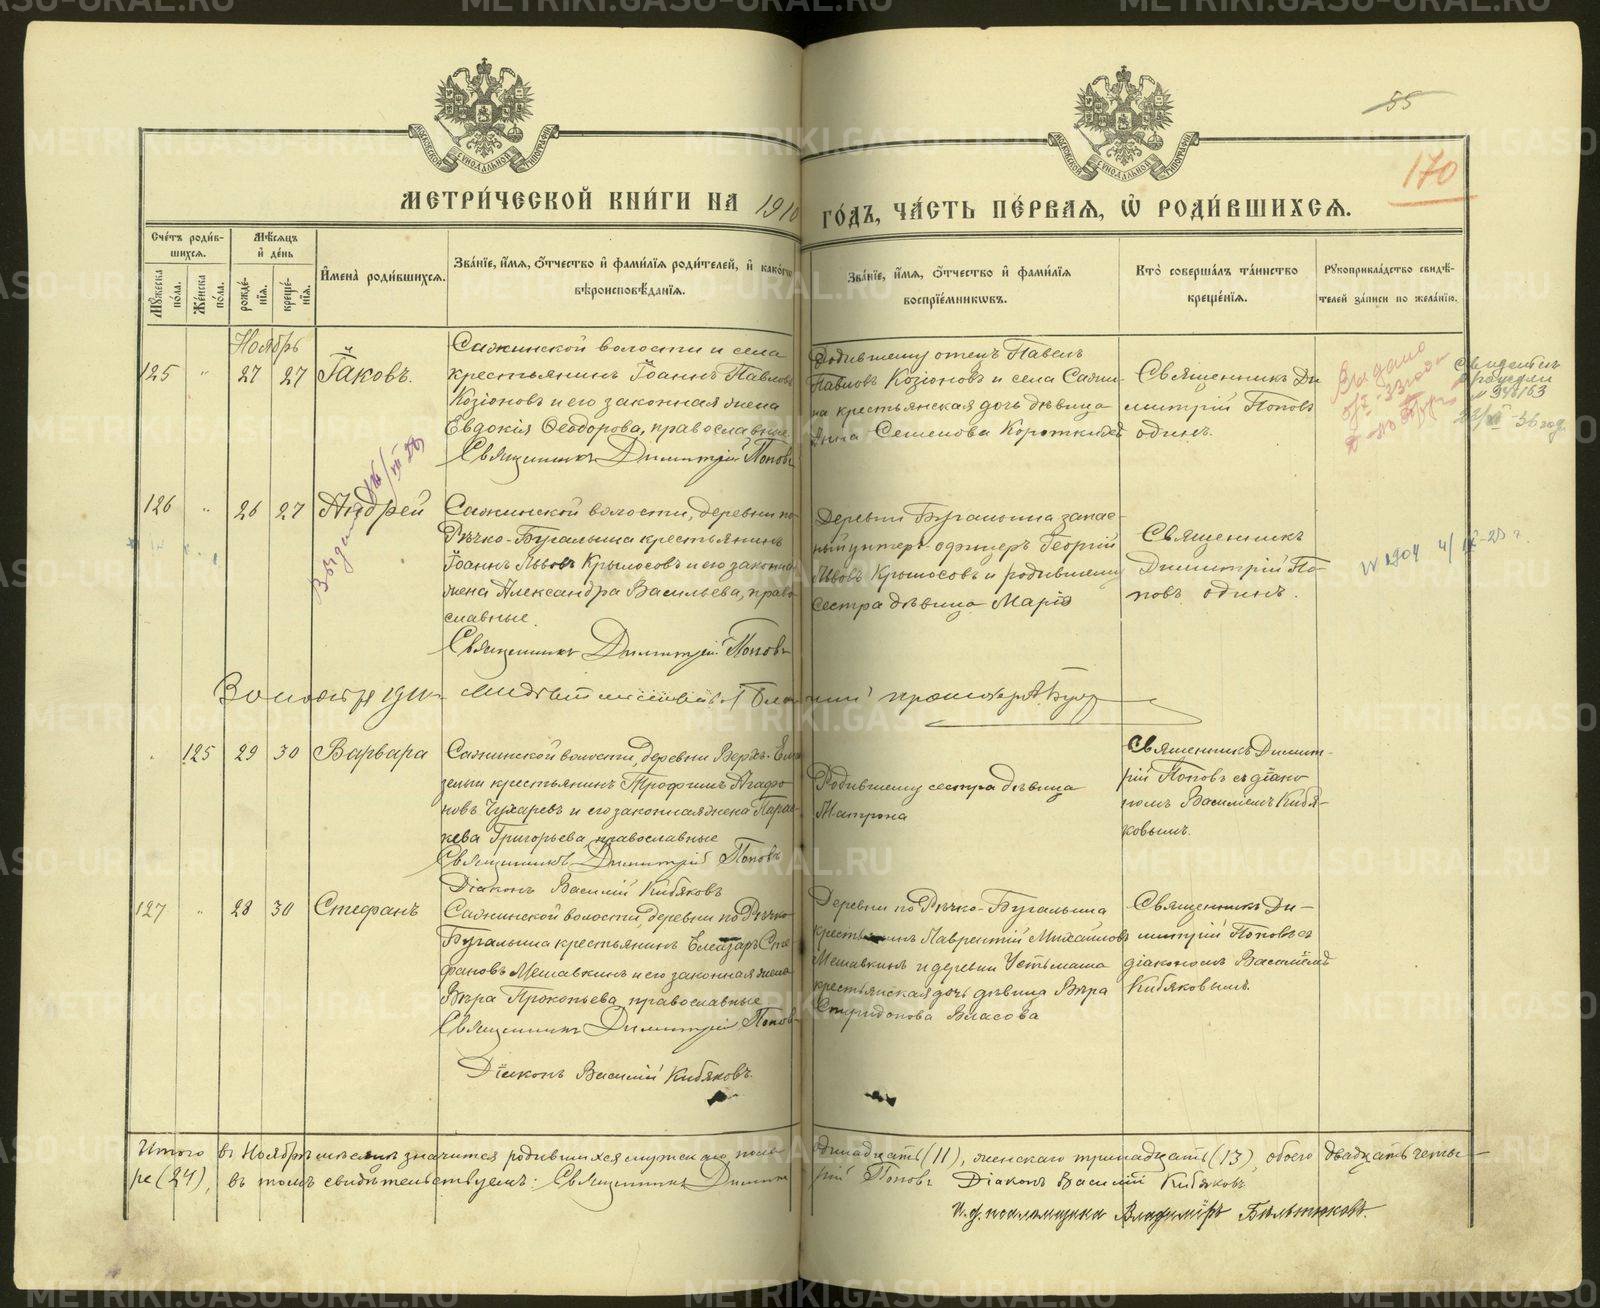 55
170
МЕТРИ́ЧЕСКОЙ КНИ́ГИ НА 1910 ГО́ДЪ, ЧА́СТЬ ПЕ́РВАѦ, Ѡ҆ РОДИ́ВШИХСѦ.
Сче́тъ роди́в-
шихся.
Мѣ́сяцъ
и҆ де́нь
Мꙋжеска по́ла.
Же́нска по́ла.
рожде́-
нїя.
креще́-
нїя.
И҆мена̀ роди́вшихся.
Зва́нїе, и҆́мя, ѻ҆́тчество и҆ фами́лїя роди́телей, и҆ како́гѡ
вѣроисповѣ́данїя.
Зва́нїе, и҆́мя, ѻ҆́тчество и҆ фами́лїя
воспрїе́мникѡвъ.
Кто̀ соверша́лъ та́инство
креще́нїя.
Рꙋкоприкла́дство свидѣ́-
телей за́писи по жела́нїю.
Ноябрь
125 " 27 27 Іаковъ.
Сажинской волости и села
крестьянинъ Іоаннъ Павловъ
Козіоновъ и его законная жена
Евдокія Ѳеодорова, православные.
Священникъ Димитрій Поповъ
Родившему отецъ Павелъ
Павловъ Козіоновъ и села Сажи-
на крестьянская дочь дѣвица
Анна Семенова Коротких
Священникъ Ди
митрій Поповъ
одинъ.
Выдано
№ 348163
36 год.
126 " 26 27 Андрей
Сажинской волости, деревни по
Рѣчко-Бугалыша крестьянинъ
Іоаннъ Львовъ Крылосовъ и его законна
жена Александра Васильева, право-
славные.
Священникъ Димитрій Поповъ
Деревни Бугалыша запас-
ный унтеръ-офицеръ Георгій
Львовъ Крылосовъ и родившему
сестра дѣвица Марія
Священникъ
Димитрій По-
повъ одинъ.
№ 1904 4/IX-25 г.
125 29 30 Варвара
Сажинской волости, деревни Верхъ-
крестьянинъ Трофимъ Агафо
новъ Чухаревъ и его законная жена Парас-
кева Григорьева, православные
Священникъ Димитрій Поповъ
Діаконъ Василій Кибяковъ
Родившему сестра дѣвица
Матрона
Священникъ Димит-
рій Поповъ съ діако
номъ Василіемъ Кибя-
ковымъ.
127 " 28 30 Стефанъ
Сажинской волости, деревни по Рѣчко
Бугалыша крестьянинъ Елеазаръ Сте
фановъ Мешавкинъ и его законная жена
Вѣра Прокопьева, православные
Священникъ Димитрій Поповъ
Діаконъ Василій Кибяковъ.
Деревни по Рѣчко-Бугалыша
крестьянинъ Лаврентій Михайловъ
Мешавкинъ и деревни Устьмаша
крестьянская дочь дѣвица Вѣра
Спиридонова Власова
Священникъ Ди-
митрій Поповъ съ
діакономъ Василіемъ
Кибяковымъ.
Итого въ Ноябрѣ мѣсяцѣ значится родившихся мужскаго пола одинадцать (11), женскаго тринадцать (13), обоего двадцать четы-
ре (24), въ томъ свидѣтельствуемъ: Священникъ Димитрій Поповъ Діаконъ Василій Кибяковъ
и. д. псаломщика Владиміръ Бѣльтюковъ.
METRIKI.GASO-URAL.RU